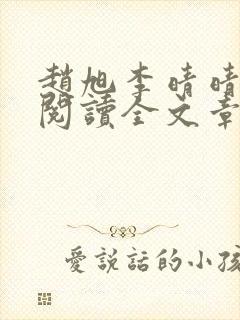 趙旭李晴晴
閱讀全文章
愛說話的小孩